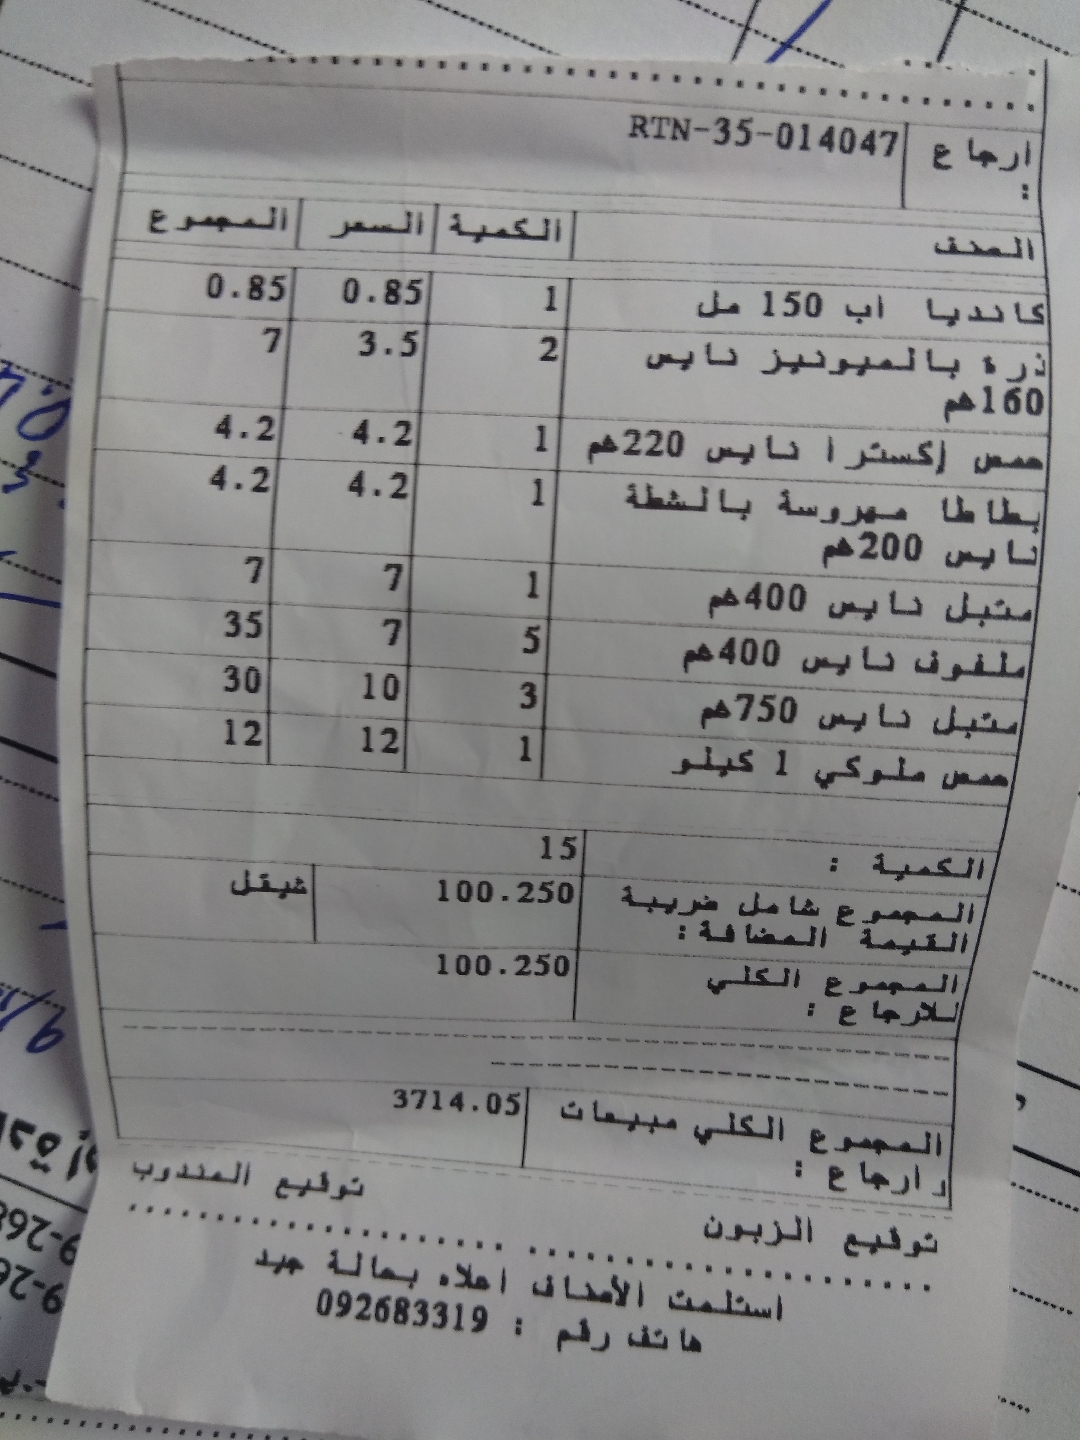 ارجاع : RTN-35-014047
الصنف الكمية السعر المجموع
كانديا اب 150 مل 1 0.85 0.85
ذرة بالميونيز نايس 2 3.5 7
160هم
حمص إكسترا نايس 220هم 1 4.2 4.2
بطاطا مهروسة بالشطة 1 4.2 4.2
نايس 200هم
متبل نايس 400هم 1 7 7
ملفوف نايس 400هم 5 7 35
متبل نايس 750هم 3 10 30
حمص ملوكي 1 كيلو 1 12 12
الكمية : 15
المجموع شامل ضريبة 100.250 شيقل
القيمة المضافة:
المجموع الكلي 100.250
للارجاع :
المجموع الكلي مبيعات 3714.05
وارجاع :
توقيع الزبون توقيع المندوب
استلمت الأصناف اعلاه بحالة جيد
هاتف رقم : 092683319